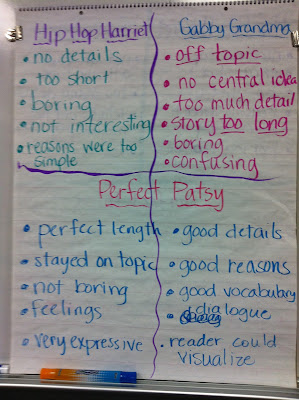 Hip Hop Harriet
• no details
• too short
• boring
• not interesting
• reasons were too
simple
Gabby Grandma
• off topic
• no central idea
• too much detail
• story too long
• boring
• confusing
Perfect Patsy
• perfect length
• stayed on topic
• not boring
• feelings
• very expressive
• good details
• good reasons
• good vocabulary
• dialogue
• reader could
visualize